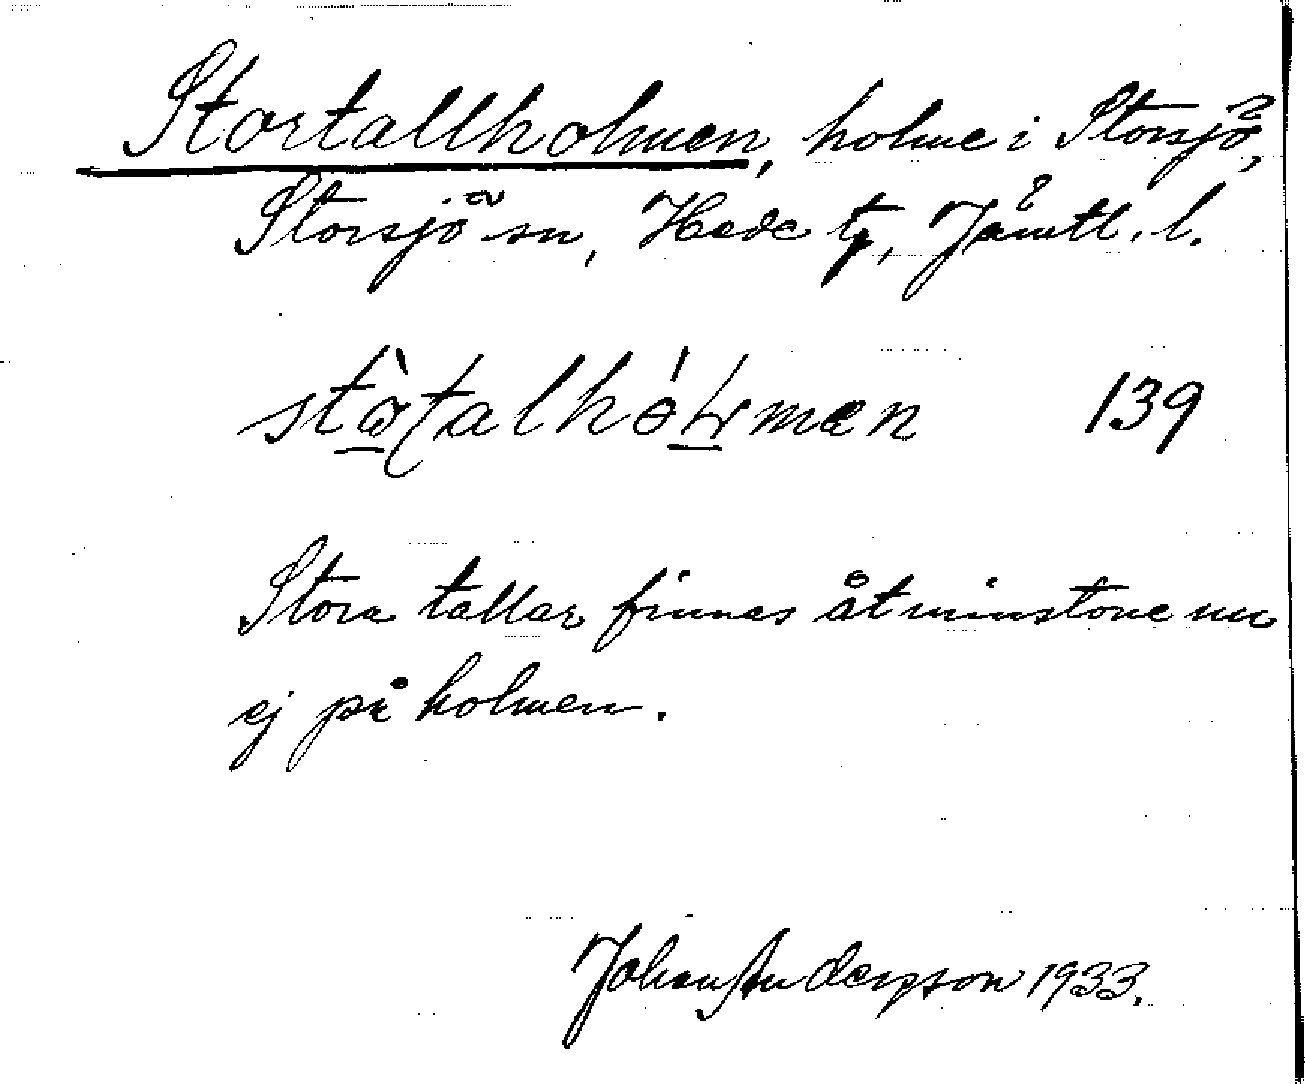 Stortallholmen, holme i Storsjö,
Storsjö sn, Hede tg, Jämtl. l.
139
Stora tallar finnes åtminstone nu
ej på holmen.
Johan Andersson 1933.